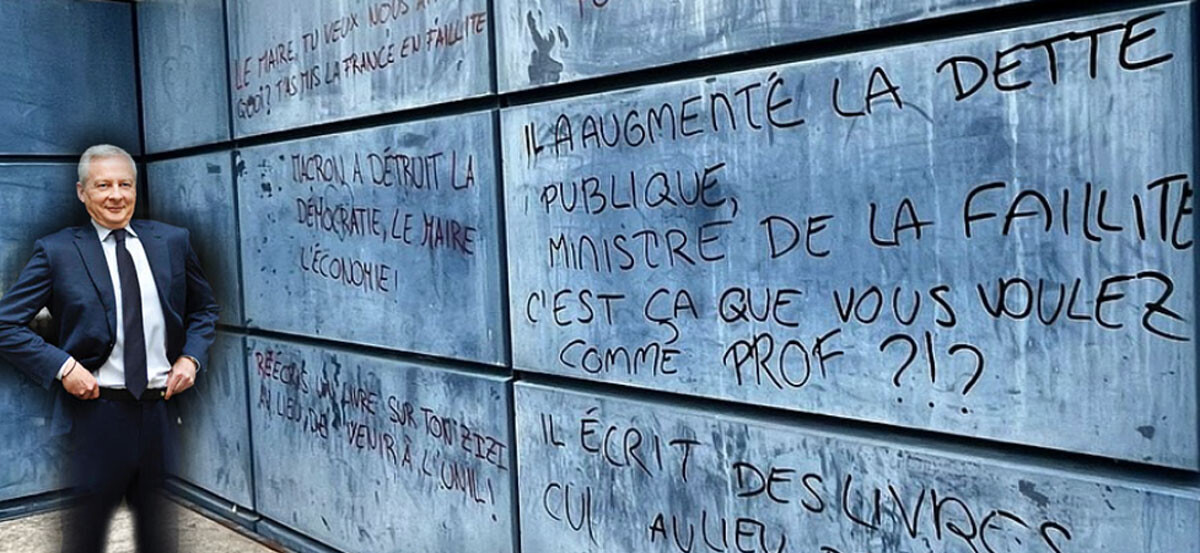 LE MAIRE, TU VEUX NOUS
QUOI? T'AS MIS LA FRANCE EN FAILLITE
MACRON A DÉTRUIT LA
DÉMOCRATIE, LE MAIRE
L'ÉCONOMIE!
RÉÉCRIS UN LIVRE SUR TON ZIZI
AU LIEU DE VENIR À L'UNIL!
IL A AUGMENTÉ LA DETTE
PUBLIQUE,
MINISTRE DE LA FAILLITE
C'EST ÇA QUE VOUS VOULEZ
COMME PROF ?!?
IL ÉCRIT DES LIVRES
CUL AU LIEU